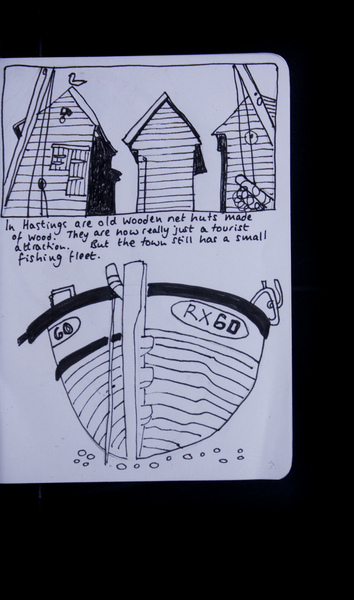 In Hastings are old wooden net huts made
of wood. They are now really just a tourist
attraction. But the town still has a small
fishing fleet.
60
RX60